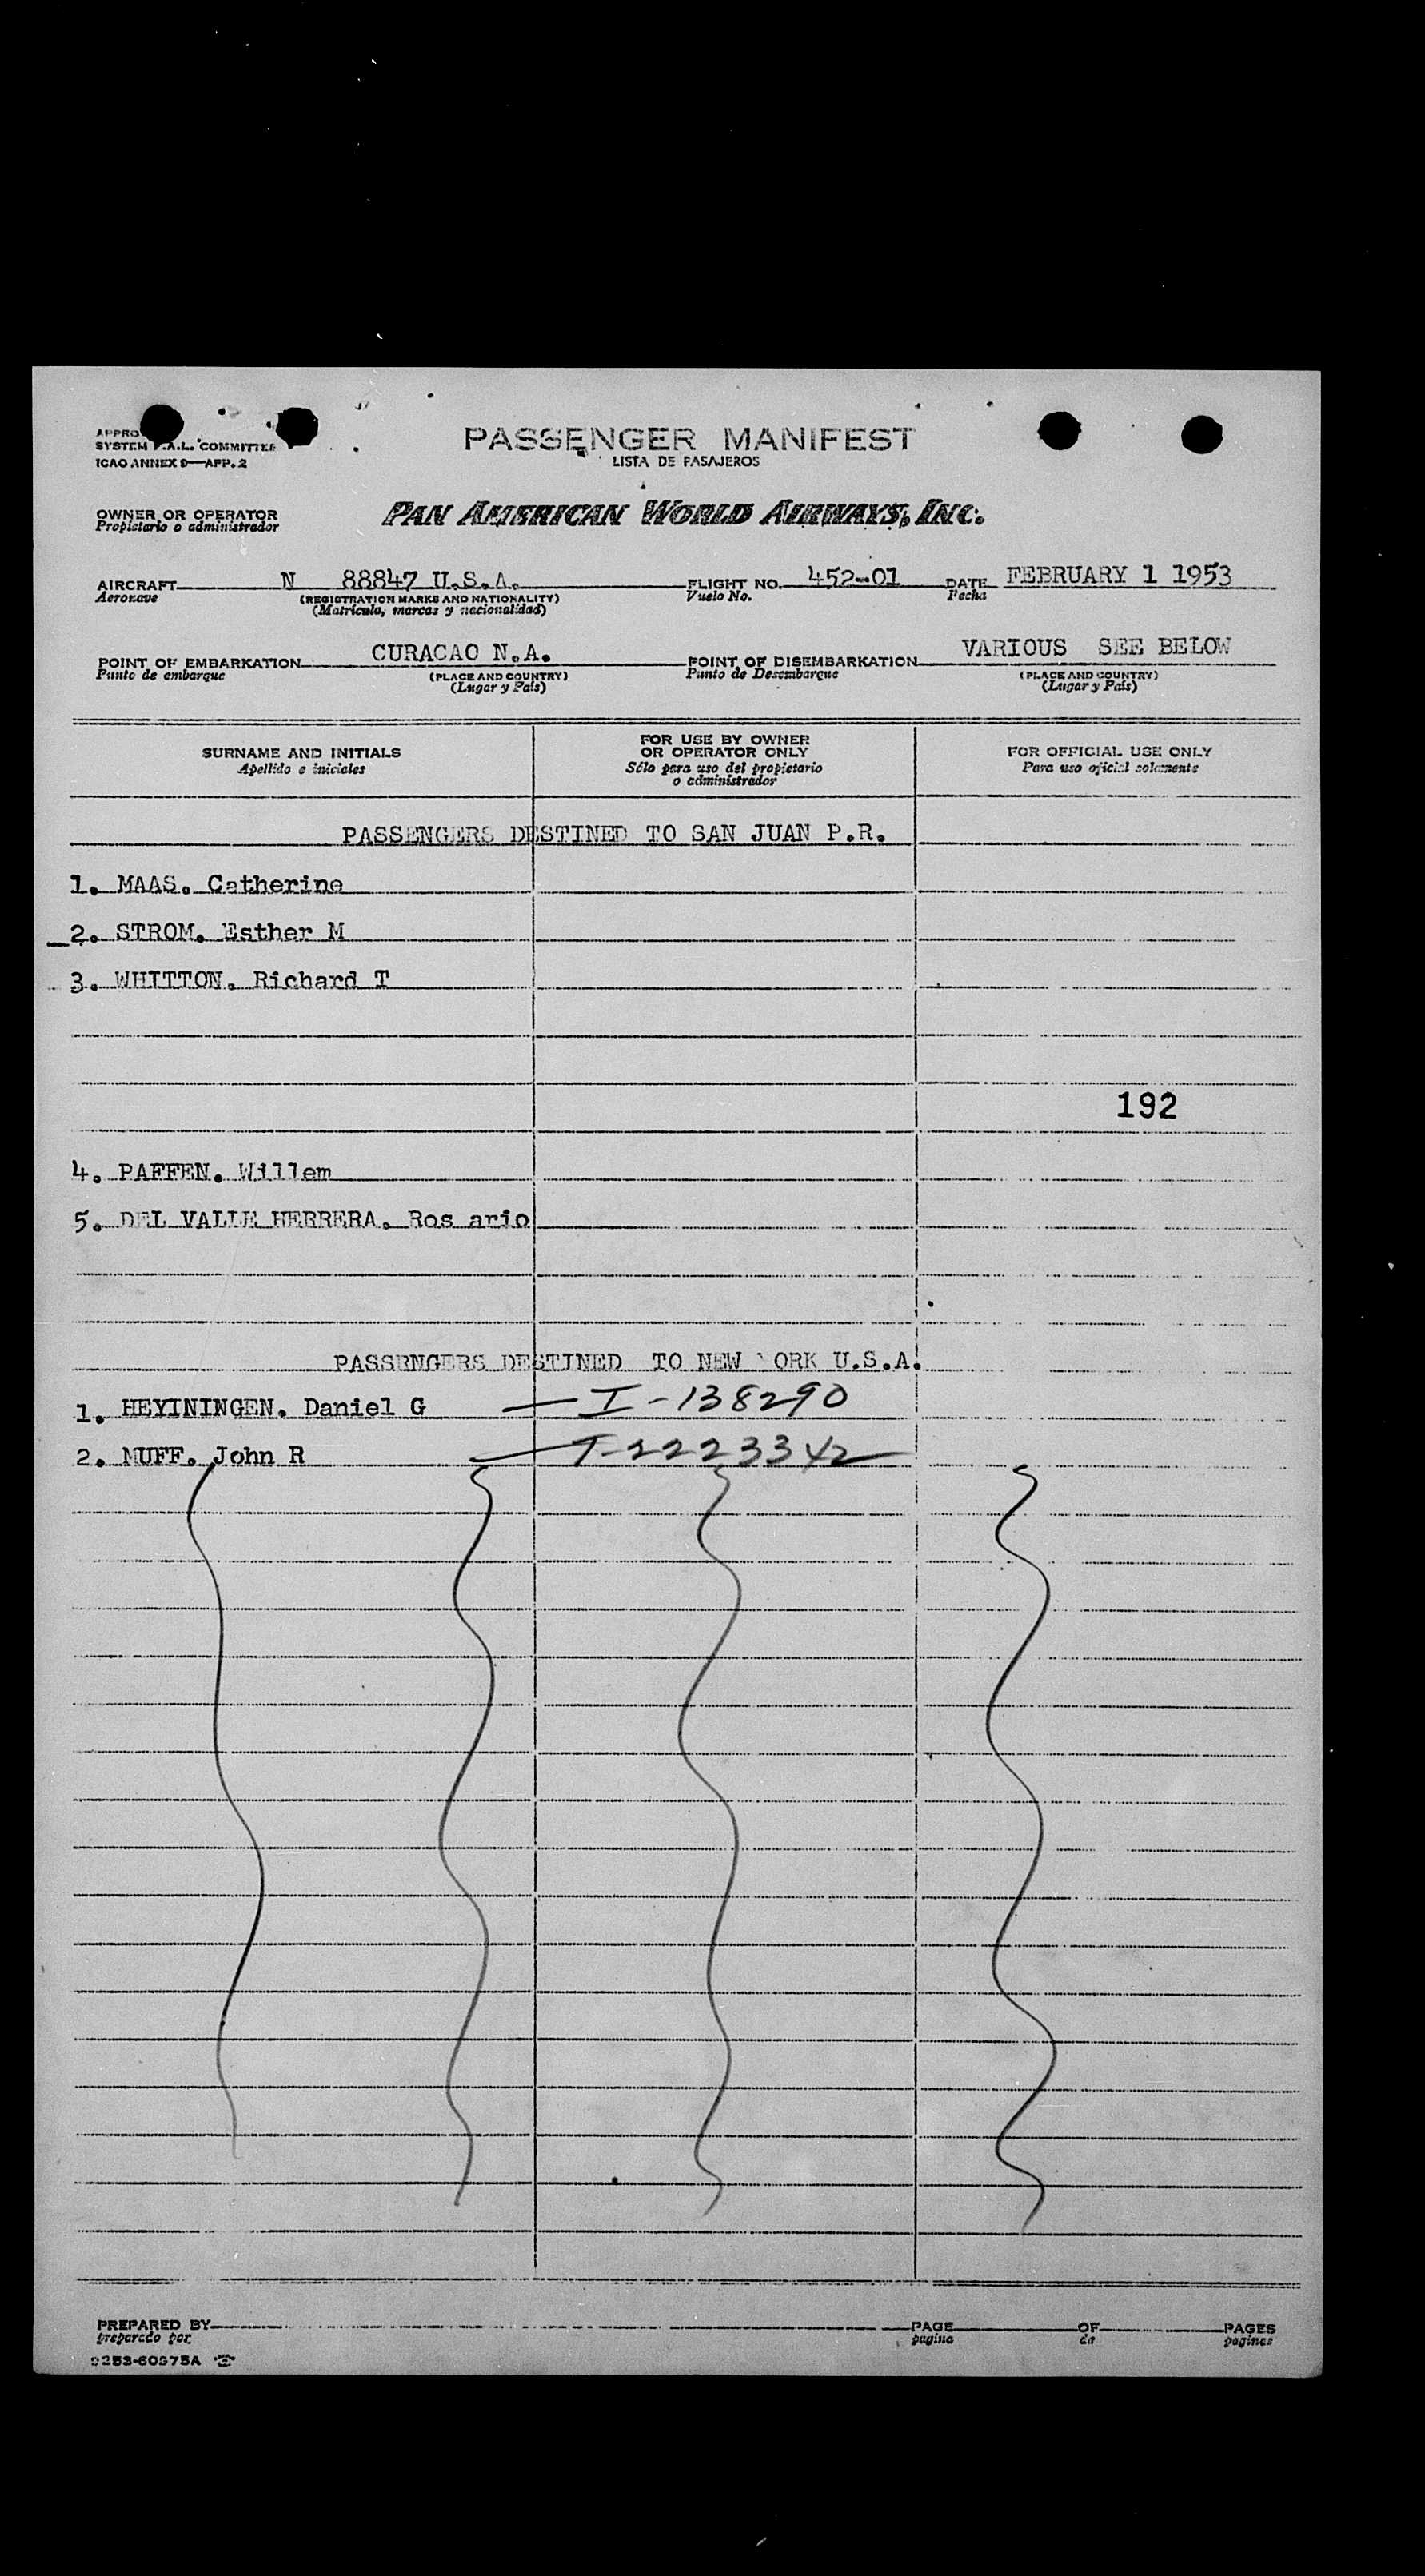 PASSENGER MANIFEST
LISTA DE PASAJEROS
APPRO
SYSTEM F.A.L. COMMITTEE
ICAO ANNEX 9—APP. 2
OWNER OR OPERATOR
Propietario o administrador
PAN AMERICAN WORLD AIRWAYS, INC.
AIRCRAFT N 88847 U.S.A. FLIGHT NO. 452-01 DATE FEBRUARY 1 1953
Aeronave (REGISTRATION MARKS AND NATIONALITY) Vuelo No. Fecha
(Matricula, marcas y nacionalidad)
POINT OF EMBARKATION CURACAO N.A. POINT OF DISEMBARKATION VARIOUS SEE BELOW
Punto de embarque (PLACE AND COUNTRY) Punto de Desembarque (PLACE AND COUNTRY)
(Lugar y País) (Lugar y País)
SURNAME AND INITIALS
Apellido e iniciales
FOR USE BY OWNER
OR OPERATOR ONLY
Sólo para uso del propietario
o administrador
FOR OFFICIAL USE ONLY
Para uso oficial solamente
PASSENGERS DESTINED TO SAN JUAN P.R.
1. MAAS. Catherine
2. STROM. Esther M
3. WHITTON. Richard T
192
4. PAFFEN. Willem
5. DEL VALLE HERRERA. Ros ario
PASSENGERS DESTINED TO NEW ORK U.S.A.
1. HEYININGEN. Daniel G — I-138290
2. MUFF. John R
PREPARED BY PAGE OF PAGES
preparado por pagina de paginas